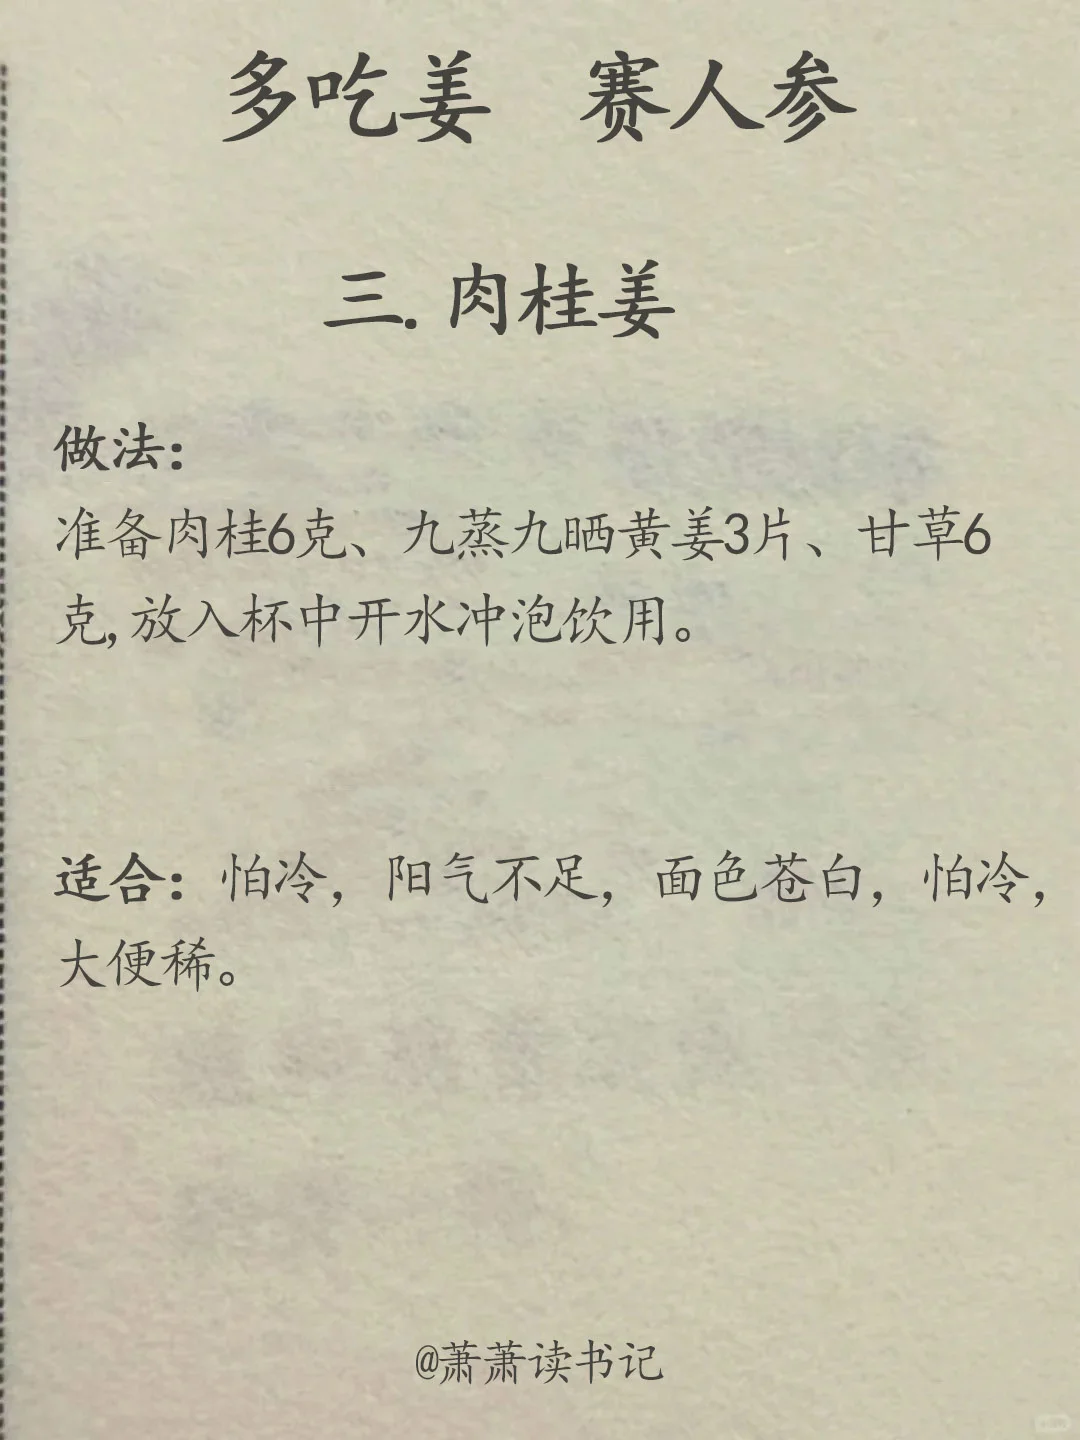 多吃姜 赛人参
三.肉桂姜
做法：
准备肉桂6克、九蒸九晒黄姜3片、甘草6
克,放入杯中开水冲泡饮用。
适合：怕冷，阳气不足，面色苍白，怕冷，
大便稀。
@萧萧读书记